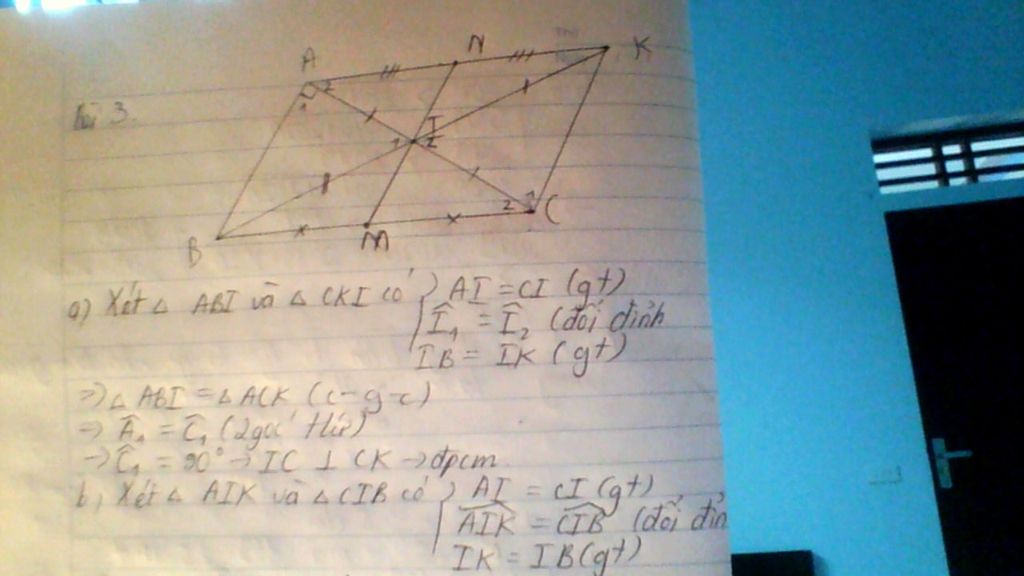 N K
A
2
1
Bài 3.
I
1 2
2 1 C
B M
a) Xét △ ABI và △ CKI có { AI = CI (gt)
Î₁ = Î₂ (đối đỉnh
IB = IK (gt)
=> △ ABI = △ ACK (c-g-c)
=> Â₁ = Ĉ₁ (2 góc t/ứ)
→ Ĉ₁ = 90° → IC ⊥ CK → đpcm
b) Xét △ AIK và △ CIB có { AI = CI (gt)
AIK = CIB (đối đỉn
IK = IB (gt)